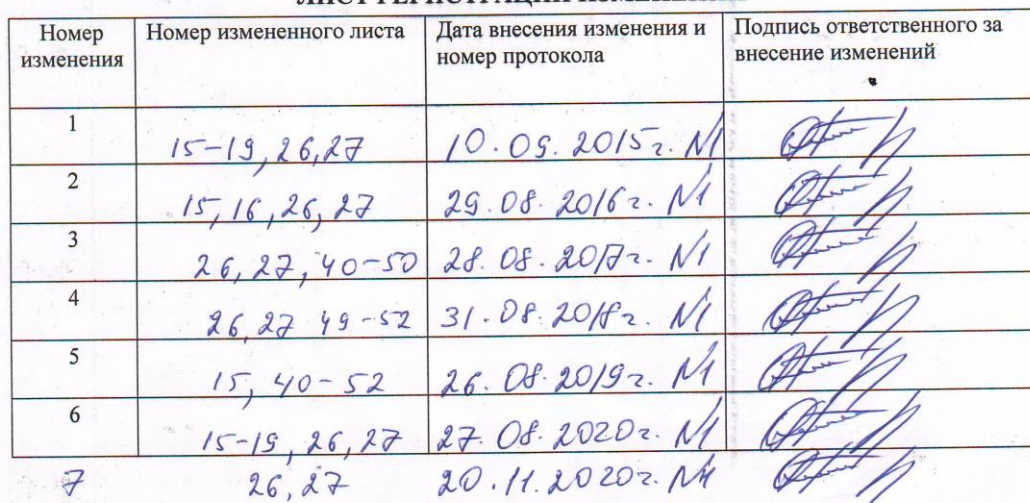 ЛИСТ РЕГИСТРАЦИИ ИЗМЕНЕНИЙ
Номер изменения | Номер измененного листа | Дата внесения изменения и номер протокола | Подпись ответственного за внесение изменений
1 | 15-19, 26, 27 | 10.09.2015г. №1
2 | 15, 16, 26, 27 | 29.08.2016г. №1
3 | 26, 27, 40-50 | 28.08.2017г. №1
4 | 26, 27 49-52 | 31.08.2018г. №1
5 | 15, 40-52 | 26.08.2019г. №1
6 | 15-19, 26, 27 | 27.08.2020г. №1
7 | 26, 27 | 20.11.2020г.